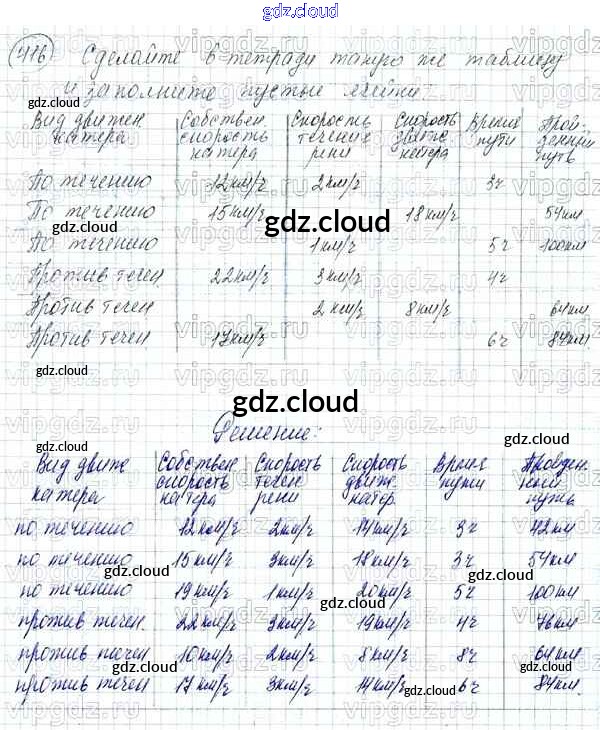 gdz.cloud
416 Сделайте в тетради такую же таблицу
и заполните пустые ячейки
Вид движен. катера | Собствен. скорость катера | Скорость течения реки | Скорость движ. катера | Время пути | Прой-денный путь
По течению | 12 км/ч | 2 км/ч | | 3ч |
По течению | 15 км/ч | | 18 км/ч | | 54 км
По течению | | 1 км/ч | | 5ч | 100 км
Против течен | 22 км/ч | 3 км/ч | | 4ч |
Против течен | | 2 км/ч | 8 км/ч | | 64 км
Против течен | 17 км/ч | | | 6ч | 84 км
gdz.cloud
Решение:
Вид движе катера | Собствен. скорость катера | Скорость течен. реки | Скорость движ. катер. | Время пути | Пройден-ный путь
по течению | 12 км/ч | 2 км/ч | 14 км/ч | 3ч | 42 км
по течению | 15 км/ч | 3 км/ч | 18 км/ч | 3ч | 54 км
по течению | 19 км/ч | 1 км/ч | 20 км/ч | 5ч | 100 км
против течен. | 22 км/ч | 3 км/ч | 19 км/ч | 4ч | 76 км
против течен | 10 км/ч | 2 км/ч | 8 км/ч | 8ч | 64 км
против течен | 17 км/ч | 3 км/ч | 14 км/ч | 6ч | 84 км.